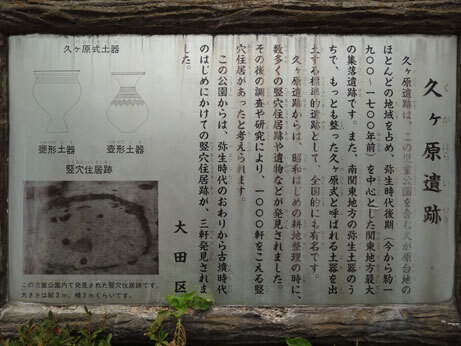 久ヶ原遺跡
久ヶ原遺跡は、この児童公園を含む久が原台地の
ほとんどの地域を占め、弥生時代後期(今から約一
九〇〇~一七〇〇年前)を中心とした関東地方最大
の集落遺跡です。また、南関東地方の弥生土器のう
ちで、もっとも整った久ヶ原式と呼ばれる土器を出
土する標準的遺跡として、全国的にも有名です。
久ヶ原遺跡からは、昭和はじめの耕地整理の時に、
数多くの竪穴住居跡や遺物などが発見されました。
その後の調査や研究により、一〇〇〇軒をこえる竪
穴住居があったと考えられます。
この公園からは、弥生時代のおわりから古墳時代
のはじめにかけての竪穴住居跡が、三軒発見されま
した。
大田区
久ヶ原式土器
甕形土器
壺形土器
竪穴住居跡
この児童公園内で発見された竪穴住居跡です。
大きさは縦3m、横3mくらいです。